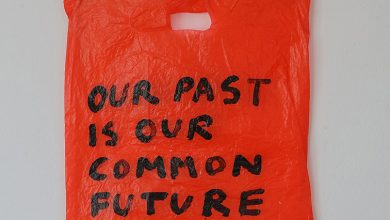 OUR PAST
IS OUR
COMMON
FUTURE